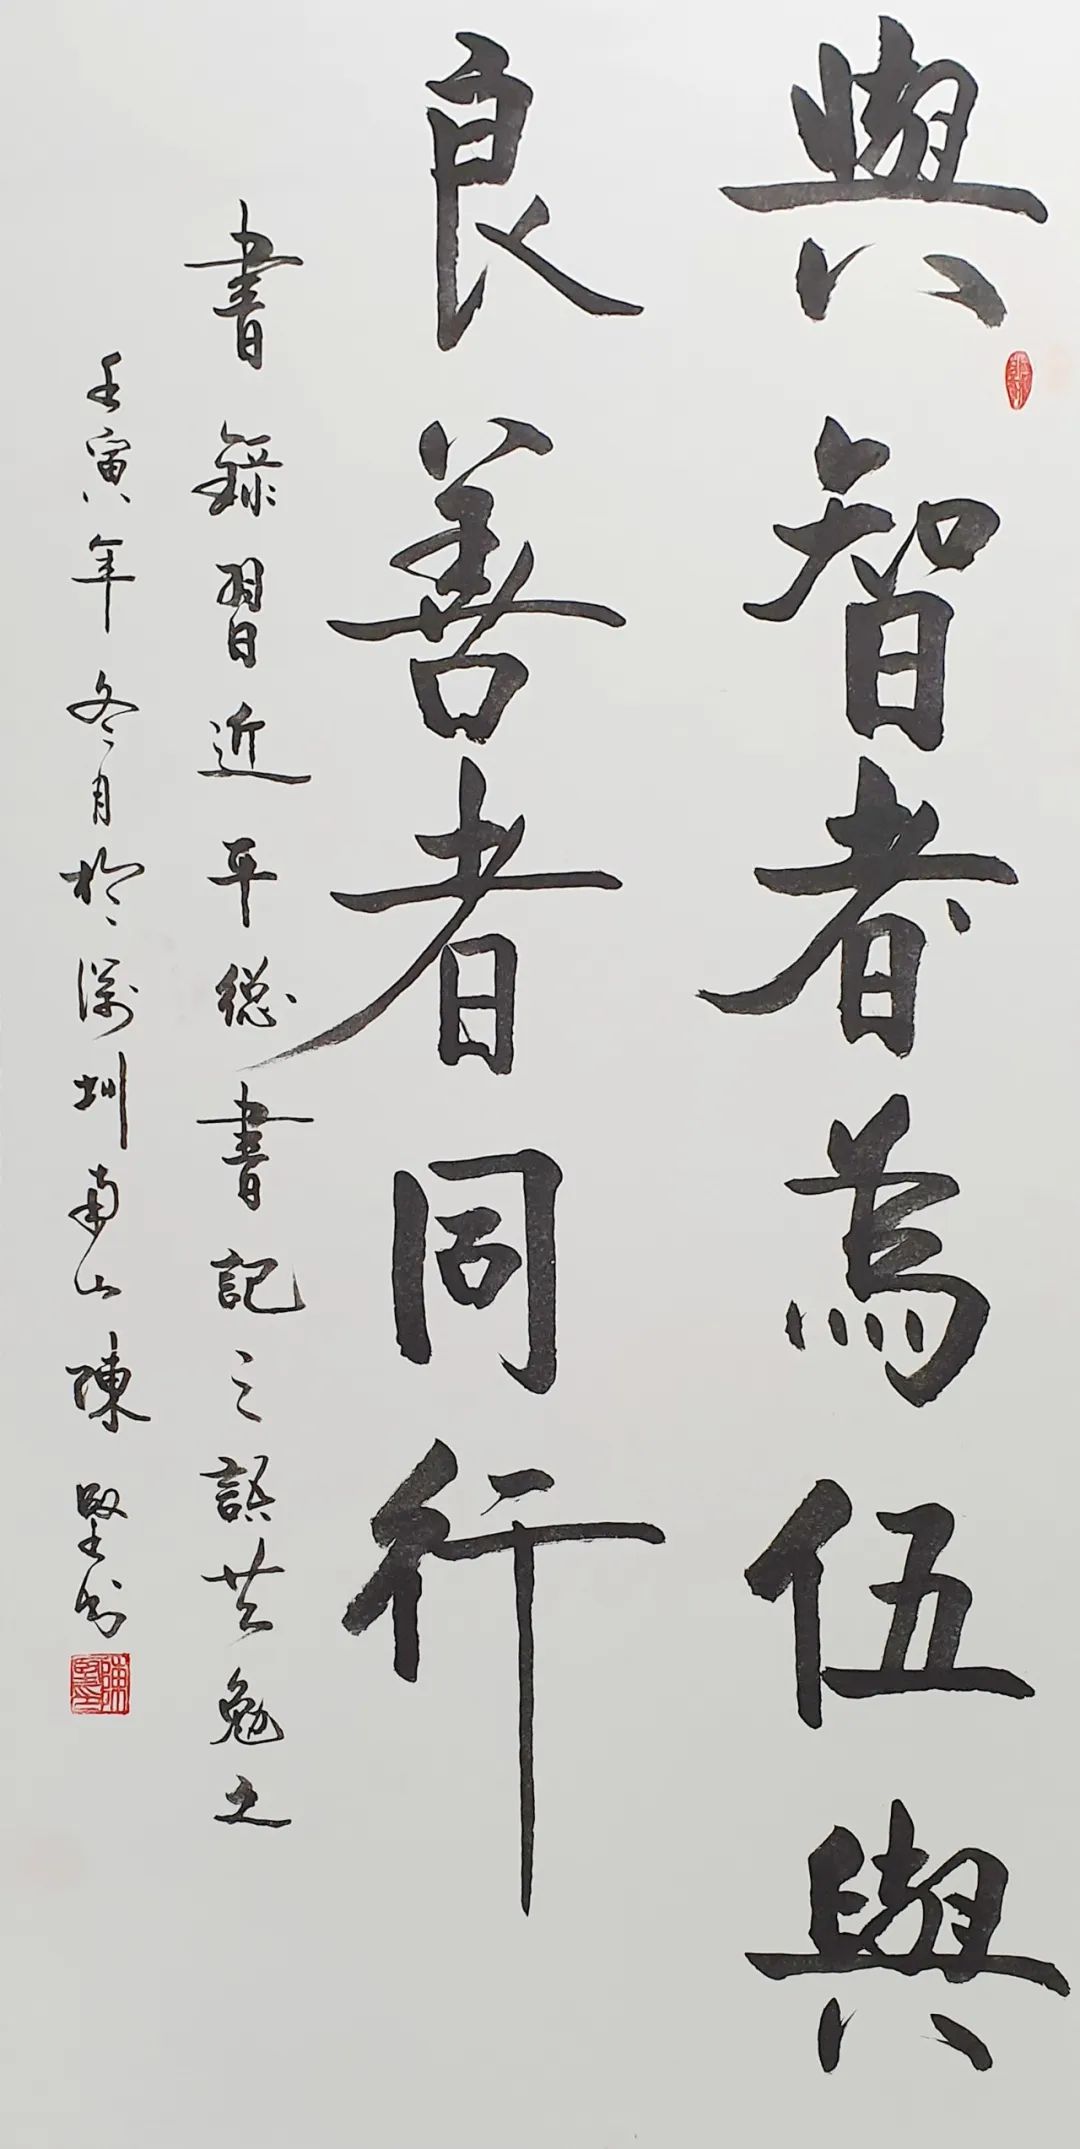 與智者為伍與
良善者同行
書錄習近平総書記之語共勉之
壬寅年冬月於深圳南山陳堅書